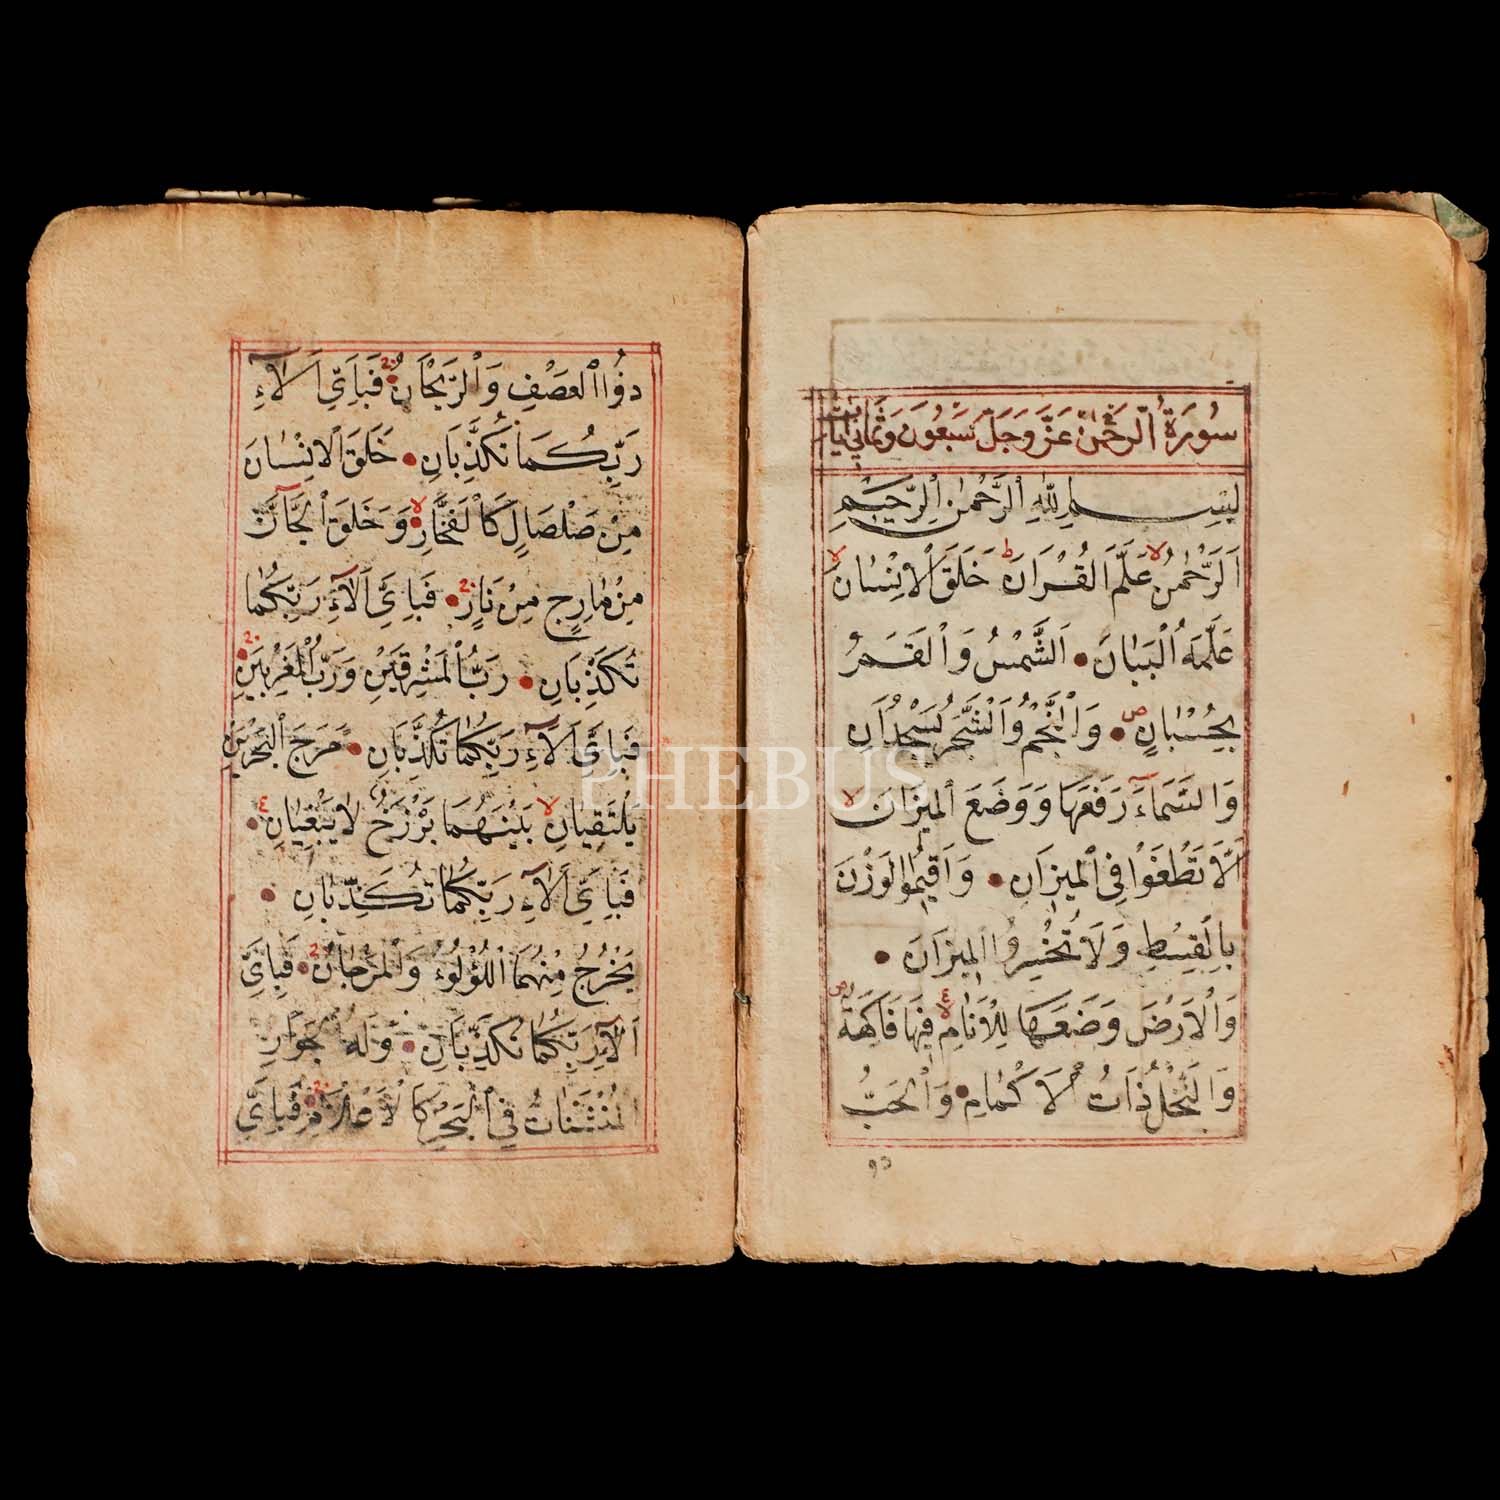 سُورَةُ الرَّحْمٰنِ عَزَّ وَجَلَّ سَبْعُونَ وَثَمَانِي آيَاتٍ
بِسْمِ اللّٰهِ الرَّحْمٰنِ الرَّحِيمِ
اَلرَّحْمٰنُ لا عَلَّمَ الْقُرْاٰنَ ط خَلَقَ الْاِنْسَانَ لا
عَلَّمَهُ الْبَيَانَ • اَلشَّمْسُ وَالْقَمَرُ
بِحُسْبَانٍ ص • وَالنَّجْمُ وَالشَّجَرُ يَسْجُدَانِ
وَالسَّمَآءَ رَفَعَهَا وَوَضَعَ الْمِيزَانَ لا
اَلَّا تَطْغَوْا فِي الْمِيزَانِ • وَاَقِيمُوا الْوَزْنَ
بِالْقِسْطِ وَلَا تُخْسِرُوا الْمِيزَانَ •
وَالْاَرْضَ وَضَعَهَا لِلْاَنَامِ لا ٤ فِيهَا فَاكِهَةٌ ص
وَالنَّخْلُ ذَاتُ الْاَكْمَامِ • وَالْحَبُّ
ذو
ذُوا الْعَصْفِ وَالرَّيْحَانُ • فَبِاَيِّ اٰلَآءِ
رَبِّكُمَا تُكَذِّبَانِ • خَلَقَ الْاِنْسَانَ
مِنْ صَلْصَالٍ كَالْفَخَّارِ لا • وَخَلَقَ الْجَآنَّ
مِنْ مَارِجٍ مِنْ نَارٍ • فَبِاَيِّ اٰلَآءِ رَبِّكُمَا
تُكَذِّبَانِ • رَبُّ الْمَشْرِقَيْنِ وَرَبُّ الْمَغْرِبَيْنِ •
فَبِاَيِّ اٰلَآءِ رَبِّكُمَا تُكَذِّبَانِ • مَرَجَ الْبَحْرَيْنِ
يَلْتَقِيَانِ لا بَيْنَهُمَا بَرْزَخٌ لَا يَبْغِيَانِ ٤ •
فَبِاَيِّ اٰلَآءِ رَبِّكُمَا تُكَذِّبَانِ •
يَخْرُجُ مِنْهُمَا اللُّؤْلُؤُ وَالْمَرْجَانُ • فَبِاَيِّ
اٰلَآءِ رَبِّكُمَا تُكَذِّبَانِ • وَلَهُ الْجَوَارِ
الْمُنْشَئَاتُ فِي الْبَحْرِ كَالْاَعْلَامِ • فَبِاَيِّ
PHEBUS